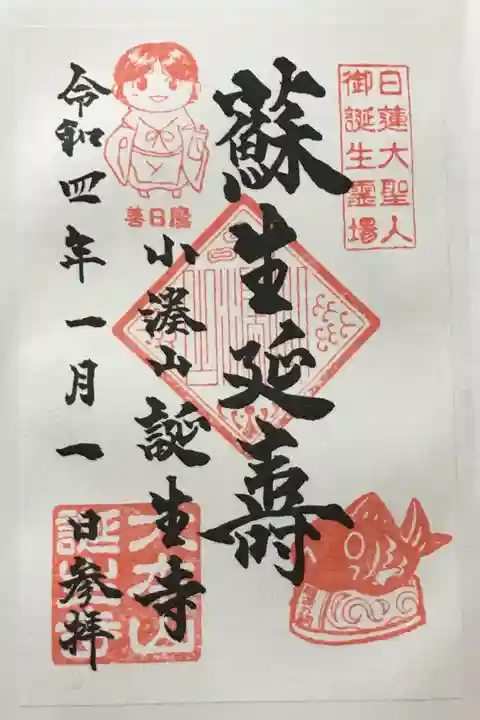 日蓮大聖人
御誕生霊場
蘇生延寿
小湊山誕生寺
善日麿
令和四年一月一
日参拝
大本山
誕生寺